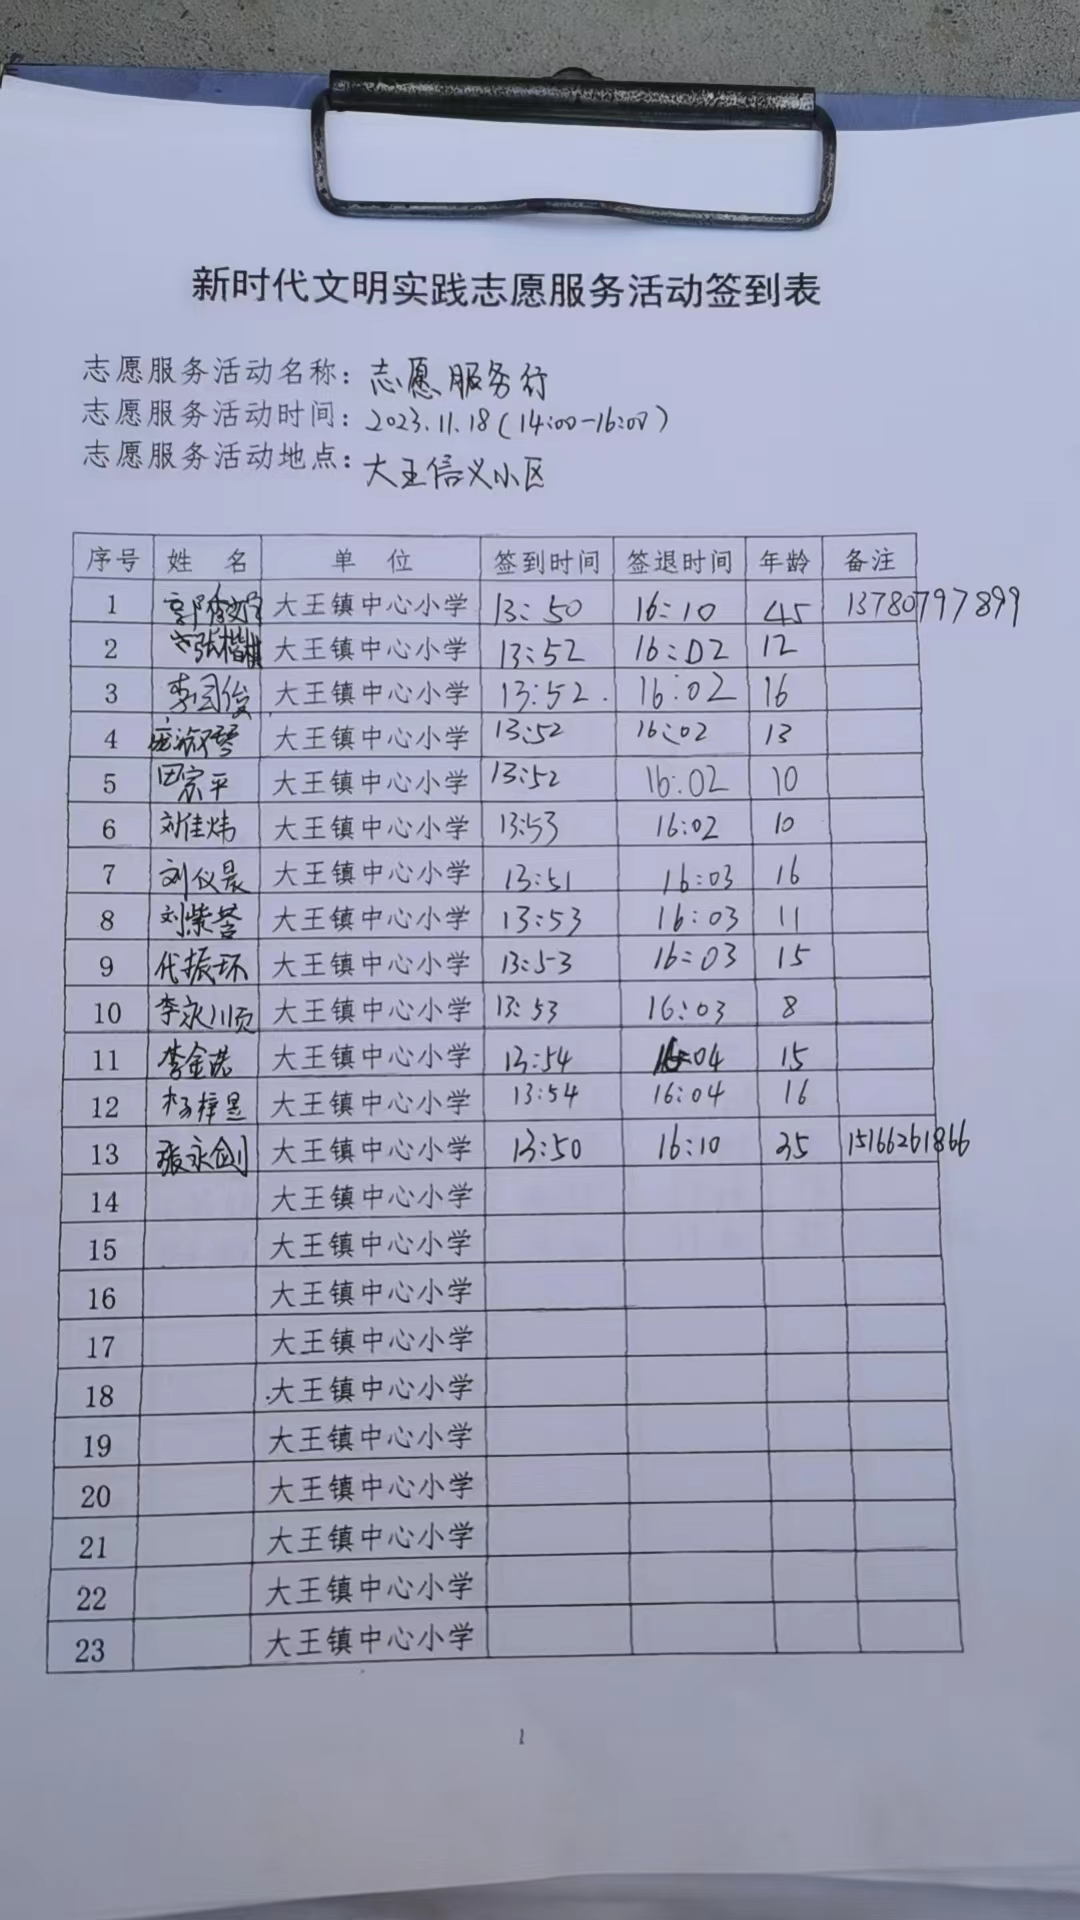 新时代文明实践志愿服务活动签到表
志愿服务活动名称：志愿服务行
志愿服务活动时间：2023.11.18（14:00-16:00）
志愿服务活动地点：大王信义小区
序号 姓 名 单 位 签到时间 签退时间 年龄 备注
1 大王镇中心小学 13:50 16:10 45 13780797899
2 大王镇中心小学 13:52 16:02 12
3 李国俊 大王镇中心小学 13:52. 16:02 16
4 大王镇中心小学 13:52 16:02 13
5 田宗平 大王镇中心小学 13:52 16:02 10
6 刘佳炜 大王镇中心小学 13:53 16:02 10
7 刘仪晨 大王镇中心小学 13:51 16:03 16
8 刘紫茗 大王镇中心小学 13:53 16:03 11
9 代振环 大王镇中心小学 13:53 16:03 15
10 李永顺 大王镇中心小学 13:53 16:03 8
11 李金诺 大王镇中心小学 13:54 16:04 15
12 杨梓昱 大王镇中心小学 13:54 16:04 16
13 张永剑 大王镇中心小学 13:50 16:10 35 15166261866
14 大王镇中心小学
15 大王镇中心小学
16 大王镇中心小学
17 大王镇中心小学
18 大王镇中心小学
19 大王镇中心小学
20 大王镇中心小学
21 大王镇中心小学
22 大王镇中心小学
23 大王镇中心小学
1